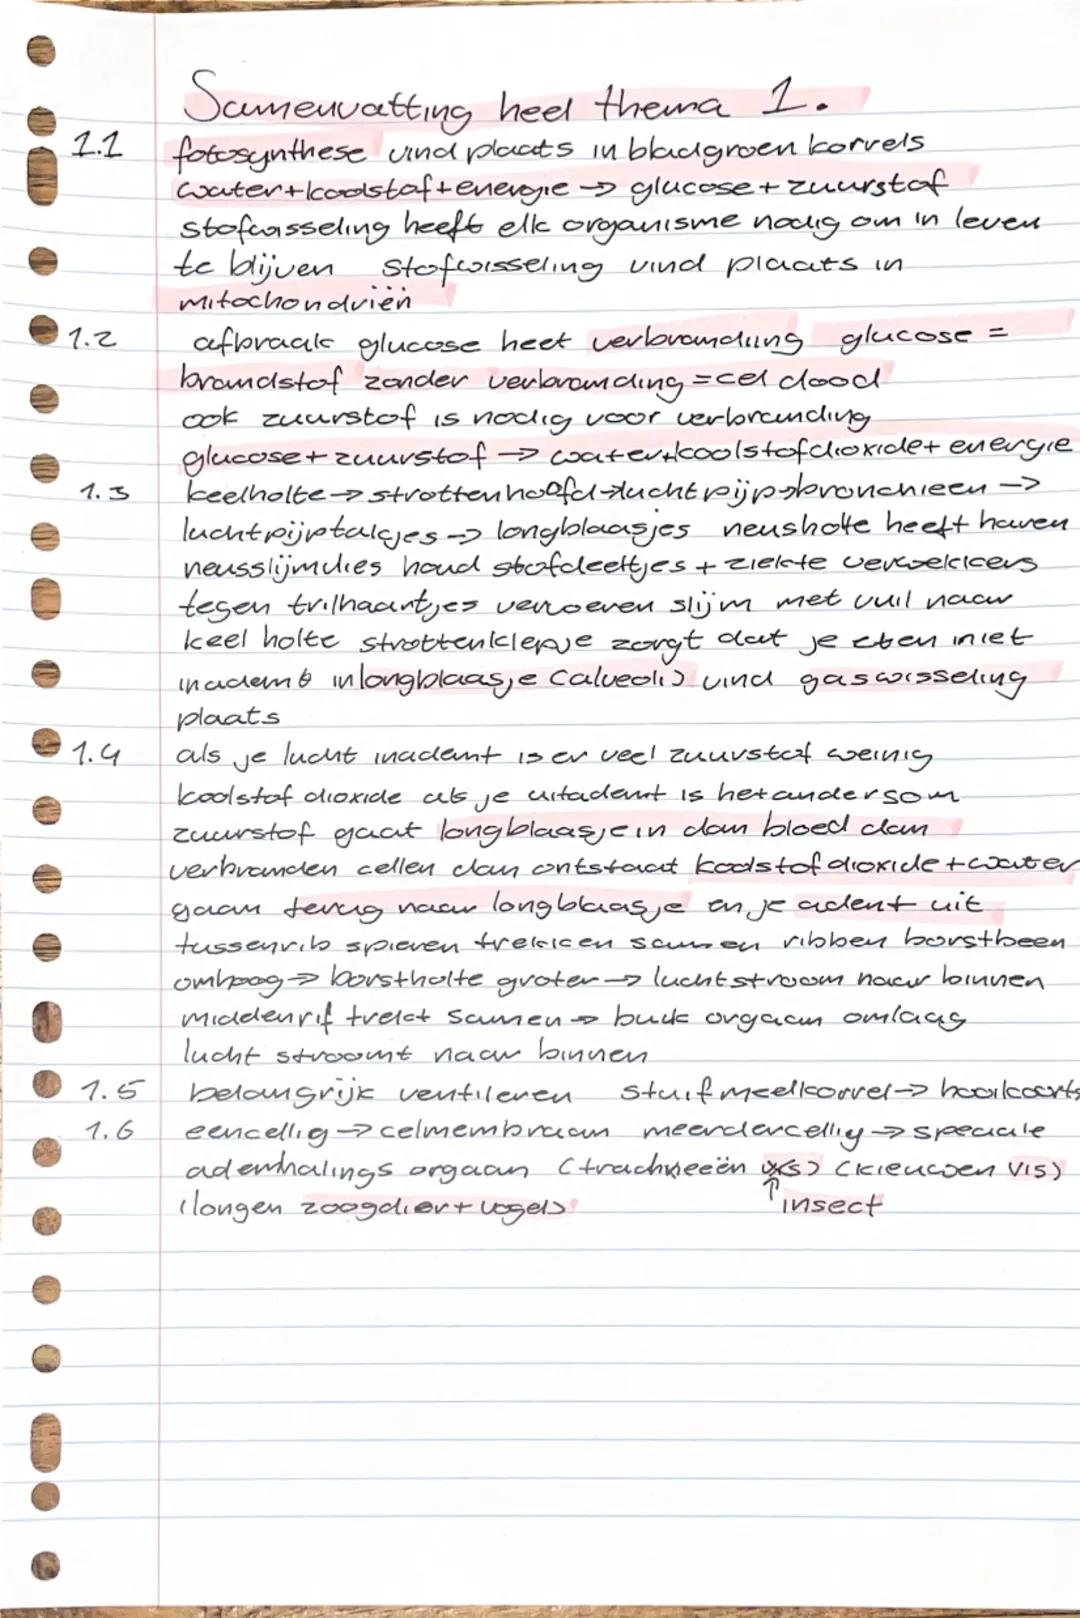 Samenvatting heel thema 1.
1.1 fotosynthese vind plaats in bladgroen korrels
water+koolstof+energie → glucose+zuurstof
stofwisseling heeft elk organisme nodig om in leven
te blijven stofwisseling vind plaats in
mitochondriën
1.2 afbraak glucose heet verbranding glucose =
brandstof zonder verbranding = cel dood
ook zuurstof is nodig voor verbranding
glucose+zuurstof → water+koolstofdioxide+ energie
1.3 keelholte → strottenhoofd→luchtpijp→bronchieen →
luchtpijptakjes → longblaasjes neusholte heeft haren
neusslijmvlies houd stofdeeltjes + ziekte verwekkers
tegen trilhaartjes vervoeren slijm met vuil naar
keel holte strottenklepje zorgt dat je eten niet
inademt in longblaasje (alveoli) vind gaswisseling
plaats
1.4 als je lucht inademt is er veel zuurstof weinig
koolstof dioxide als je uitademt is het andersom
zuurstof gaat longblaasje in dan bloed dan
verbranden cellen dan ontstaat koolstofdioxide+water
gaan terug naar longblaasje en je ademt uit
tussenrib spieren trekken samen ribben borstbeen
omhoog → borstholte groter → luchtstroom naar binnen
middenrif trekt samen → buik orgaan omlaag
lucht stroomt naar binnen
1.5 belangrijk ventileren stuifmeelkorrel → hooikoorts
1.6 eencellig → celmembraan meerdercellig → speciale
ademhalings orgaan (tracheeën ) (kieuwen vis)
(longen zoogdier+vogels) ↑insect